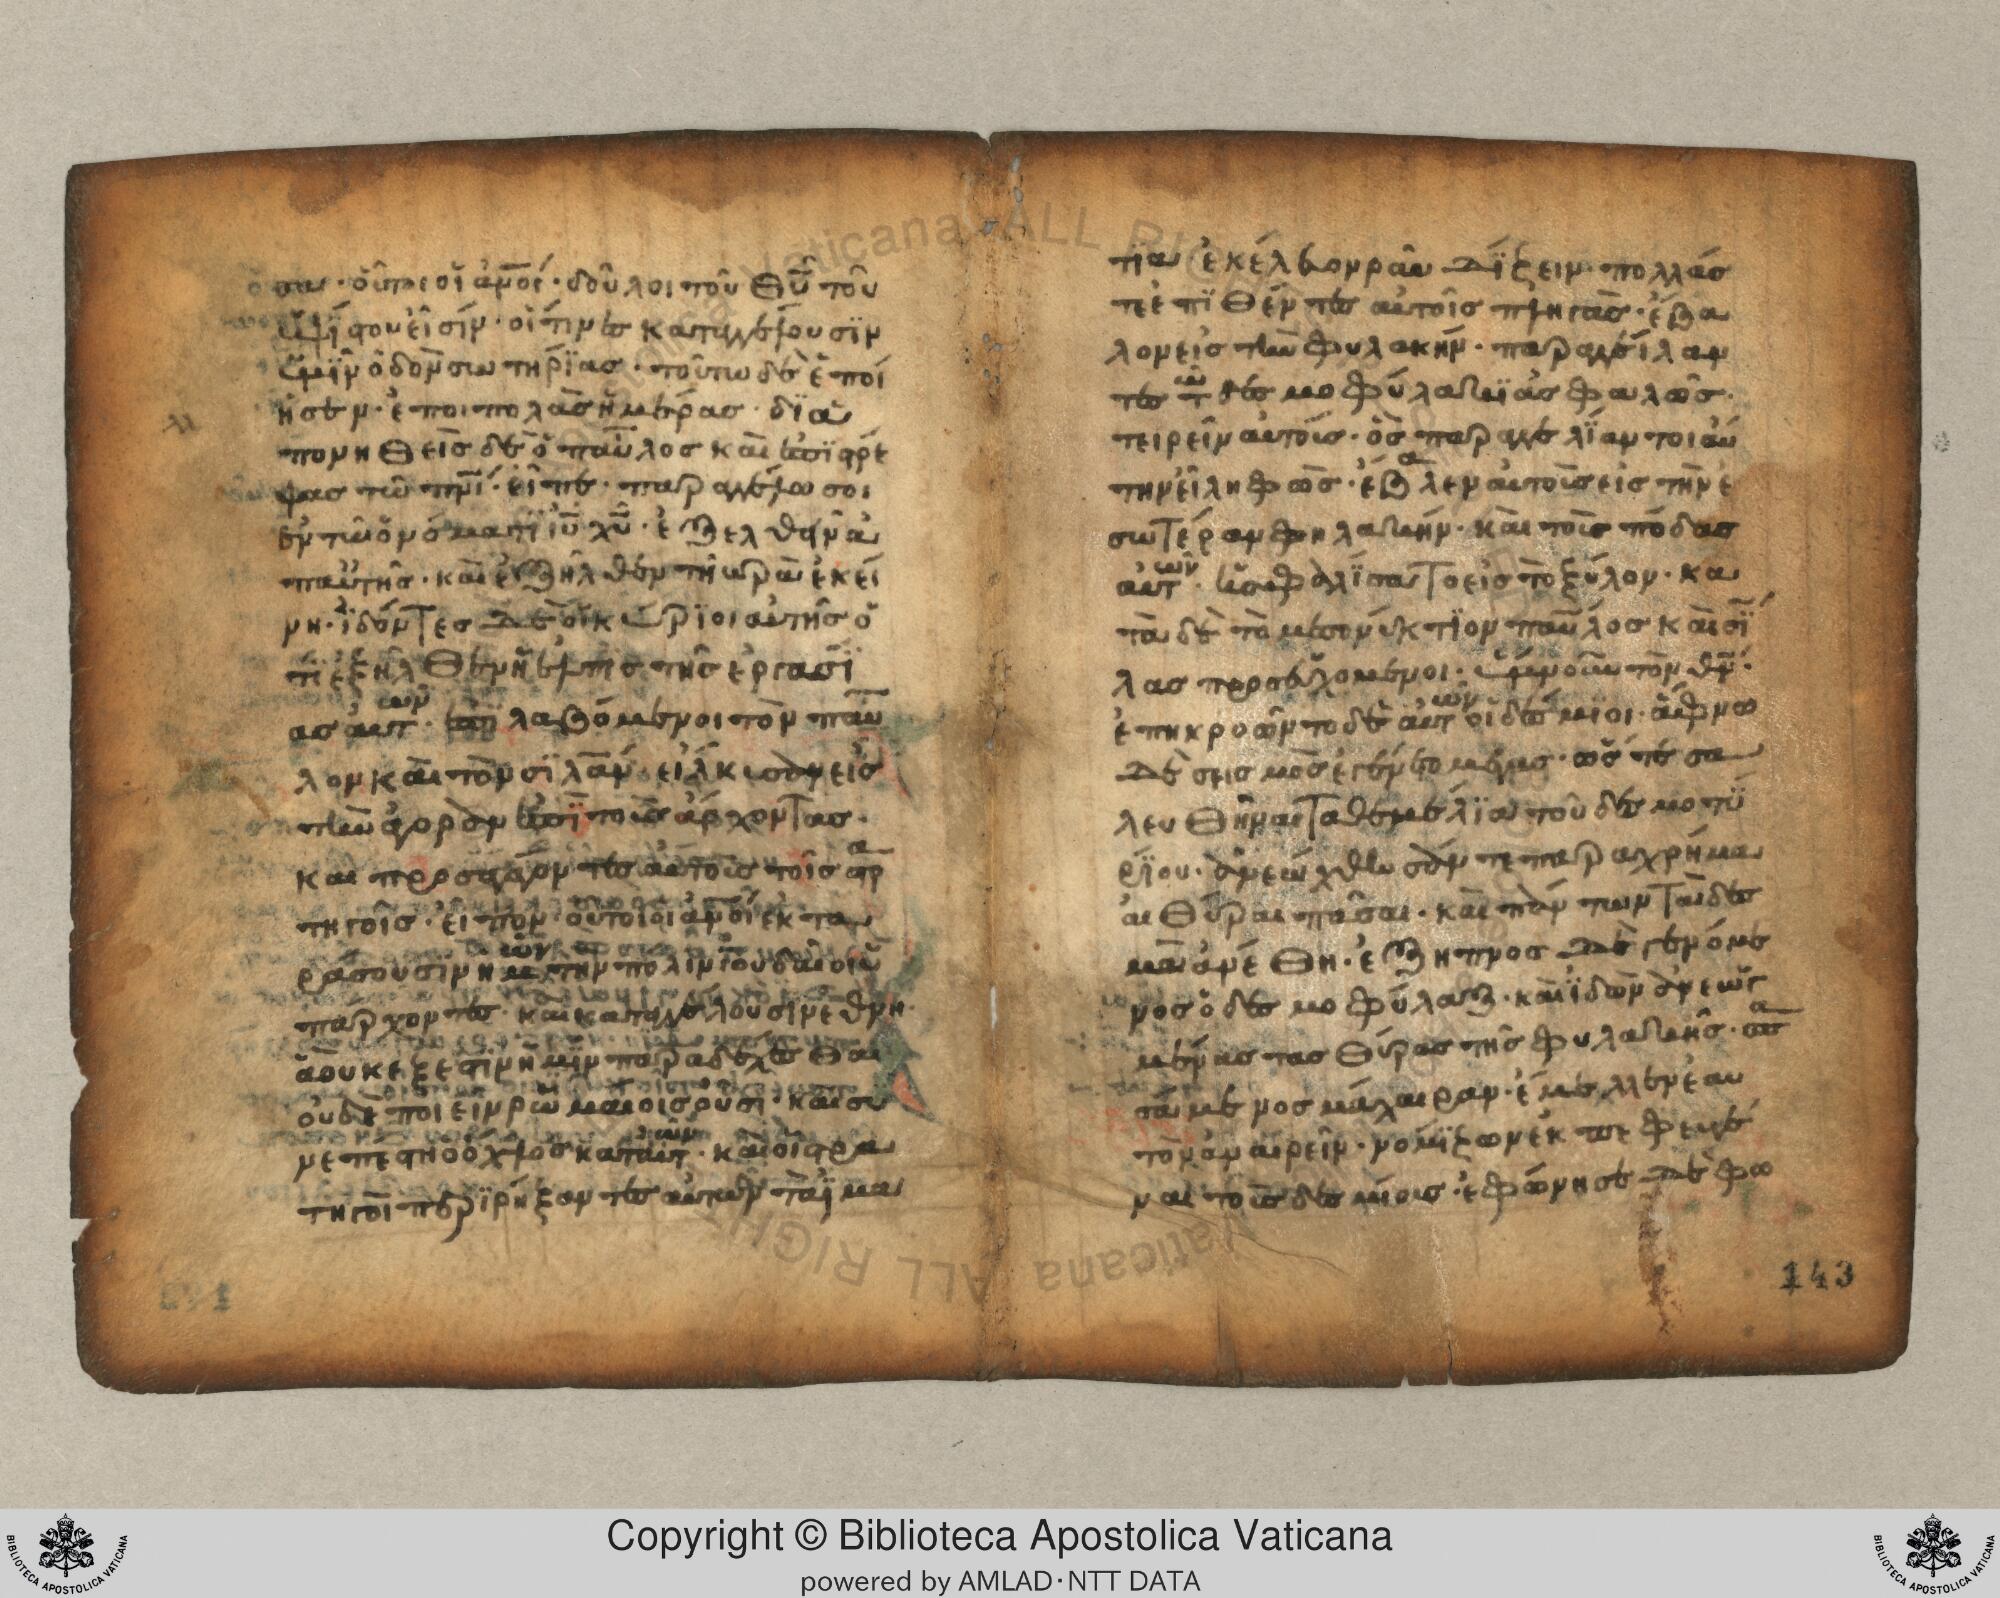 σαι· οὗτοι οἱ ἀν̅οί· δοῦλοι τοῦ θ̅υ̅ τοῦ
ὑψίστου εἰσίν· οἵτινες καταγγέλλουσϊν
ὑμῖν ὁδὸν σωτηρίας· τοῦτο δὲ ἐποί
ησεν· ἐπι πολὰς ἡμέρας· δϊα
πονηθεὶς δὲ ὁ παῦλος καὶ ἐπϊστρέ
ψας τῶ π̅ν̅ι̅· εἶπε· παραγγέλλω σοι
ἐν τῶ ὀνόματι ϊ̅υ̅ χ̅υ̅· ἐξελθεῖν ἀ
π' αὐτῆς· καὶ ἐξῆλθεν τῆ ὥρα ἐκεί
νη· ἰδόντες δὲ οἱ κύρϊοι αὐτῆς ὅ
τϊ ἐξῆλθεν ἡ ἐλπὶς τῆς ἐργασΐ
ας αὐτῶν· ἐπιλαβόμενοι τὸν παῦ
λον καὶ τὸν σϊλᾶν· εἵλκυσαν εἰς
τὴν ἀγορὰν ἐπὶ τοὺς ἄρχοντας·
και προσαγαγόντες αὐτοὺς τοῖς στρα
τηγοῖς· εἶπον· οὗτοι οἱ ἀν̅οί ἐκτα
ράσουσιν ἡμῶν τὴν πόλιν ἰουδαῖοι ὑ
πάρχοντες· καὶ καταγγέλλουσιν ἔθνη·
ἃ οὐκ ἔξεστιν ἡμῖν παραδέχεσθαι
οὐδὲ ποιεῖν ρωμαίοις οὖσι· καὶ συ
νεπέστη ὁ ὄχλος κατ' αὐτῶν· καὶ οἱ στρα
τηγοὶ περϊρήξαντες αὐτῶν τὰ ϊμα
τϊα ἐκέλευον ραβδΐζειν· πολλάς
τε ἐπϊθέντες αὐτοῖς πληγὰς· ἔβα
λον εἰς τὴν φυλακήν· παραγγείλαν
τες τῶ δεσμοφύλακϊ ἀσφαλῶς·
τειρεῖν αὐτούς· ὃς παραγγελΐαν τοιαύ
την εἰληφὼς· ἔβαλεν αὐτοὺς εἰς τὴν ἐ
σωτέραν φηλακήν· καὶ τοὺς πόδας
αὐτῶν· ἠσφαλΐσατο εἰς τὸ ξύλον· κα
τὰ δὲ τὸ μεσονύκτϊον παῦλος καὶ σΐ
λας προσευχόμενοι· ὕμνουν τὸν θ̅ν̅·
ἐπηκροῶντο δὲ αὐτῶν οἱ δέσμϊοι· ἄφνω
δὲ σεισμὸς ἐγένετο μέγας· ὥστε σα
λευθῆναι τὰ θεμέλϊα τοῦ δεσμοτη
ρΐου· ἀνεώχθησάν τε παραχρῆμα
αἱ θύραι πᾶσαι· καὶ πάντων τὰ δε
σμὰ ἀνέθη· ἔξηπνος δὲ γενόμε
νος ὁ δεσμοφύλαξ· καὶ ϊδὼν ἀνεωγ
μένας τὰς θύρας τῆς φυλακῆς· σπα
σάμενος μάχαιραν· ἔμελλεν ἑαυ
τὸν ἀναιρεῖν· νομΐζων ἐκπεφευγέ
ναι τοὺς δεσμίους· ἐφώνησε δὲ φω
143
Copyright © Biblioteca Apostolica Vaticana
powered by AMLAD·NTT DATA
BIBLIOTECA APOSTOLICA VATICANA
BIBLIOTECA APOSTOLICA VATICANA